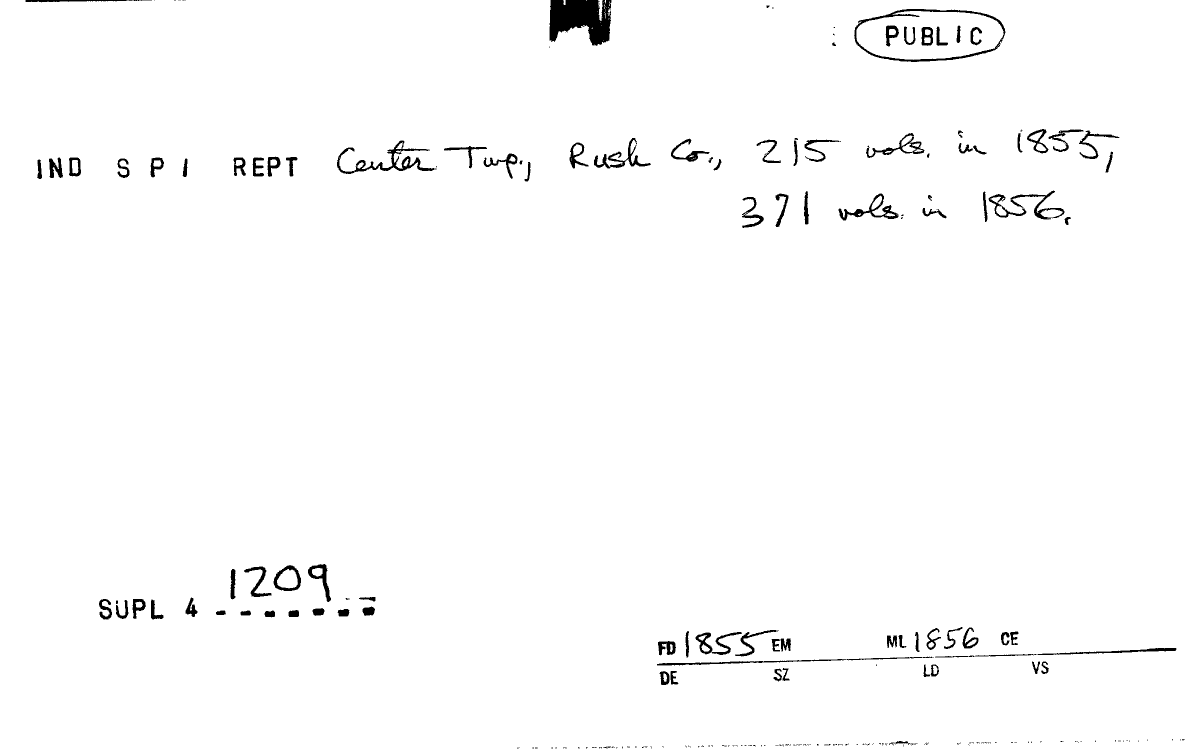 PUBLIC
IND S P I REPT Center Twp., Rush Co., 215 vols. in 1855,
371 vols. in 1856.
SUPL 4 1209
FD 1855 EM ML 1856 CE
DE SZ LD VS